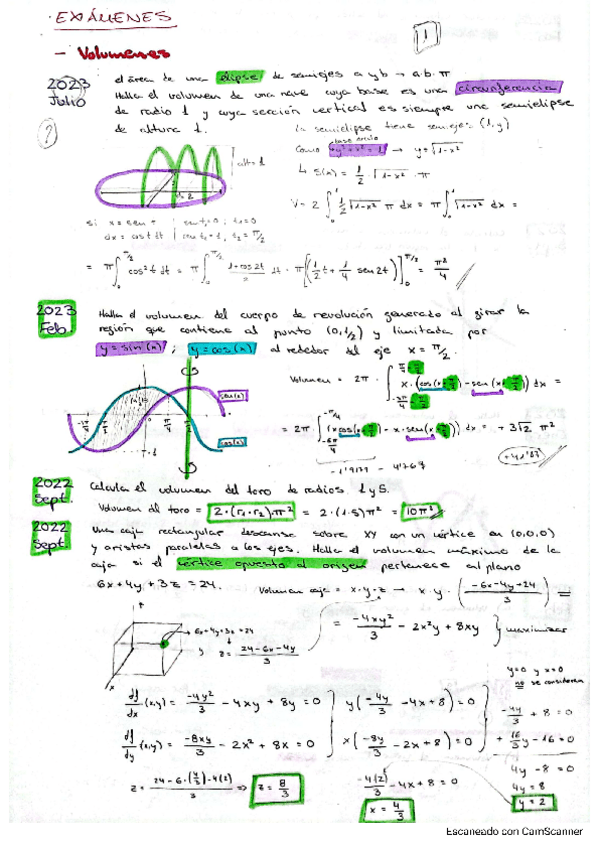 EXÁMENES
1
- Volumenes
2023 Julio
el área de una elipse de semiejes a y b → a·b·π
Halla el volumen de una nave cuya base es una circunferencia
de radio 1 y cuya sección vertical es siempre una semielipse
de altura 1.
La semielipse tiene semiejes (1, y)
?
Como y²+x²=1 → y=√1-x²
↳ S(x) = 1/2 · √1-x² · π
V = 2 ∫₀¹ 1/2 √1-x² π dx = π ∫₀¹ √1-x² dx =
si x = sen t | sen t₁=0; t₁=0
dx = cos t dt | sen t₂=1, t₂=π/2
= π ∫₀^π/2 cos² t dt = π ∫₀^π/2 1+cos 2t/2 dt = π [(1/2 t + 1/4 sen 2t)]₀^π/2 = π²/4
2023 Feb.
Halla el volumen del cuerpo de revolución generado al girar la
región que contiene al punto (0,1/2) y limitada por
y = sin(x) ; y = cos(x) al rededor del eje x = π/2.
sen(x)
cos(x)
2022 Sept.
Calcula el volumen del toro de radios 1 y 5.
Volumen del toro = 2·(r₁·r₂)·π² = 2·(1·5)π² = 10π²
2022 Sept.
Una caja rectangular descansa sobre XY con un vértice en (0,0,0)
y aristas paralelas a los ejes. Halla el volumen máximo de la
caja si el vértice opuesto al origen pertenece al plano
6x+4y+3z=24.
Volumen caja = x·y·z → x·y·(-6x-4y+24/3) =
= -4xy²/3 - 2x²y + 8xy } maximizar
6x+4y+3z=24
z = 24-6x-4y/3
y=0 y x=0
no se consideran
df/dx (x,y) = -4y²/3 - 4xy + 8y = 0 } y(-4y/3 - 4x + 8) = 0
df/dy (x,y) = -8xy/3 - 2x² + 8x = 0 } x(-8y/3 - 2x + 8) = 0
-4y/3 + 8 = 0
+ 16/3 y - 16 = 0
4y - 8 = 0
4y = 8
y = 2
z = 24-6·(4/3)-4(2)/3 => z = 8/3
-4(2)/3 - 4x + 8 = 0
x = 4/3
Escaneado con CamScanner